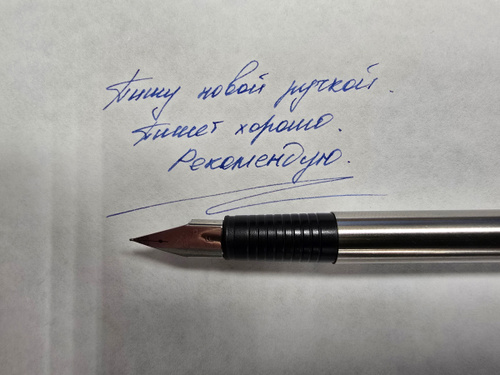 Пишу новой ручкой.
Пишет хорошо.
Рекомендую.